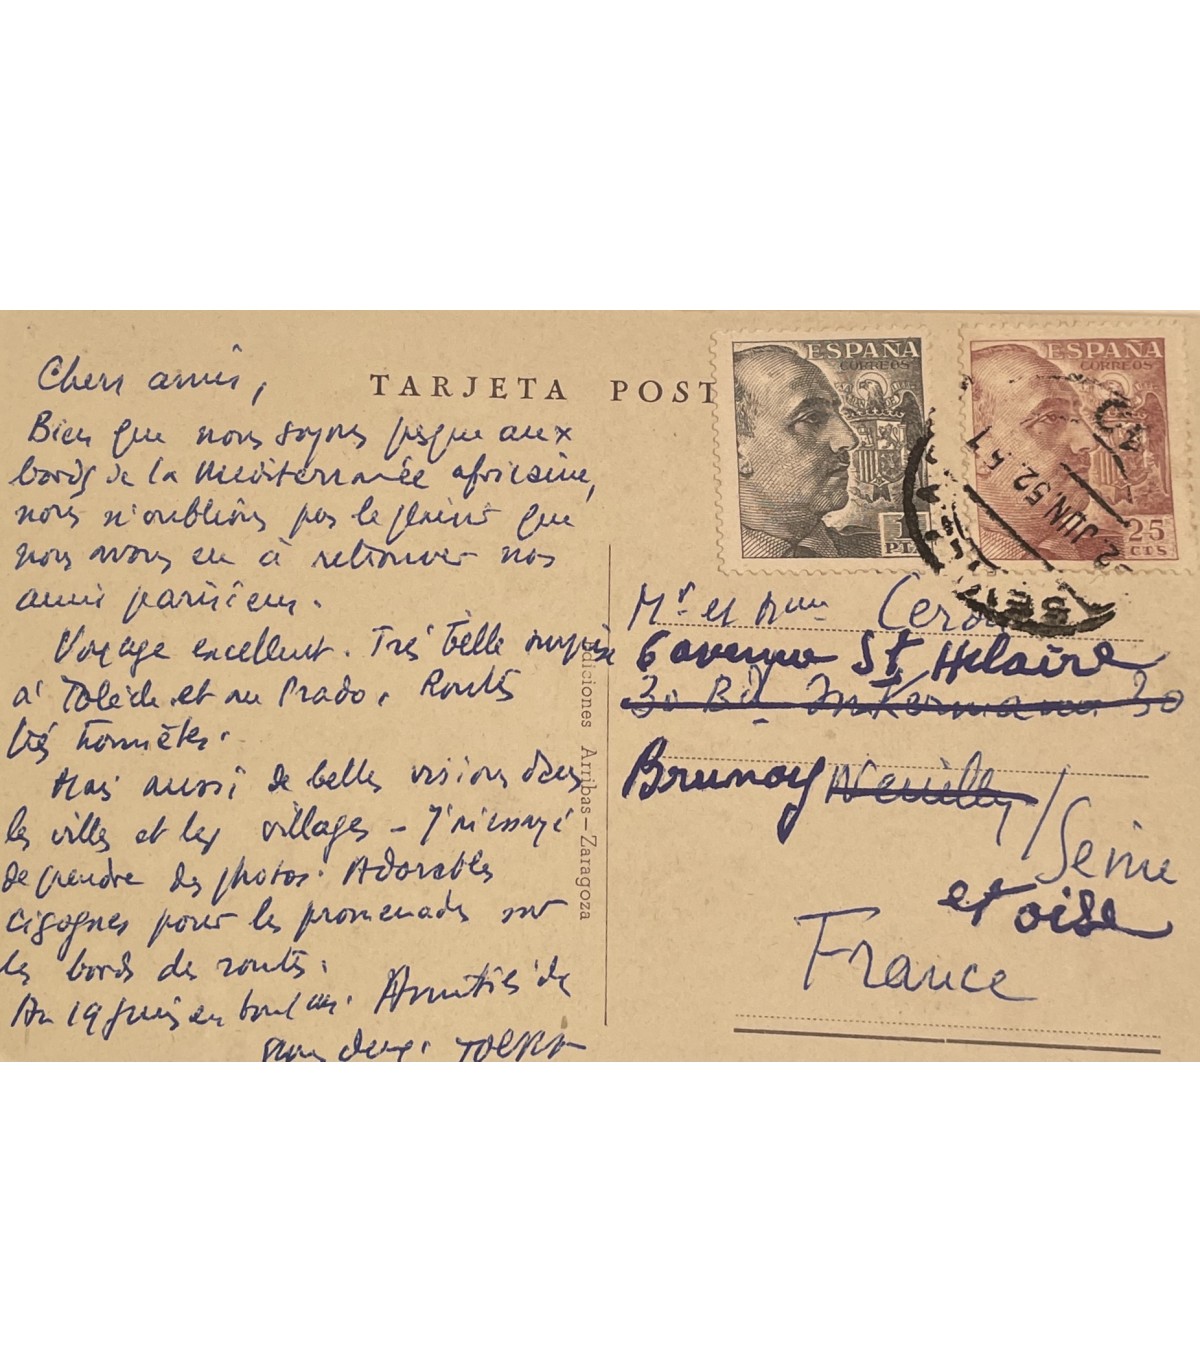 TARJETA POST
Chers amis,
Bien que nous soyons jusque aux
bords de la Méditerranée africaine,
nous n'oublions pas le plaisir que
nous avons eu à retrouver nos
amis parisiens.
Voyage excellent. Très belle surprise
à Tolède et au Prado. Routes
très
Mais aussi de belles visions dans
les villes et les villages - J'ai essayé
de prendre des photos. Adorables
cigognes pour les promenades sur
les bords des routes.
Au 19 juin Amitiés de
nous deux.
Ediciones Arribas-Zaragoza
ESPAÑA
CORREOS
1
PTA
ESPAÑA
CORREOS
25
CTS
2. JUN. 52
Mr et Mme
6 avenue St Hilaire
30 Bd Inkermann 30
Brunoy Neuilly/
Seine
et oise
France